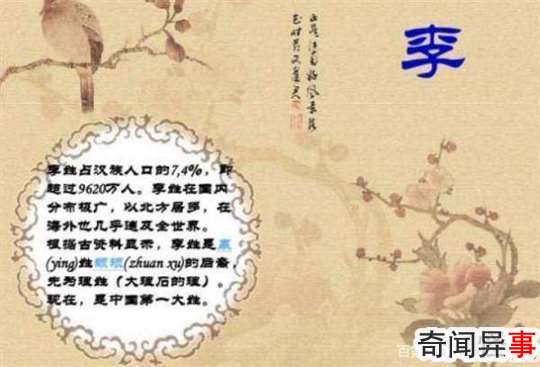 李
李姓占汉族人口的7,4%，即
超过9620万人。李姓在国内
分布极广，以北方居多，在
海外也几乎遍及全世界。
根据古资料显示，李姓是嬴
(ying)姓颛顼(zhuan xu)的后裔，
先为理姓（大理石的理）。
现在，是中国第一大姓。
奇闻异事